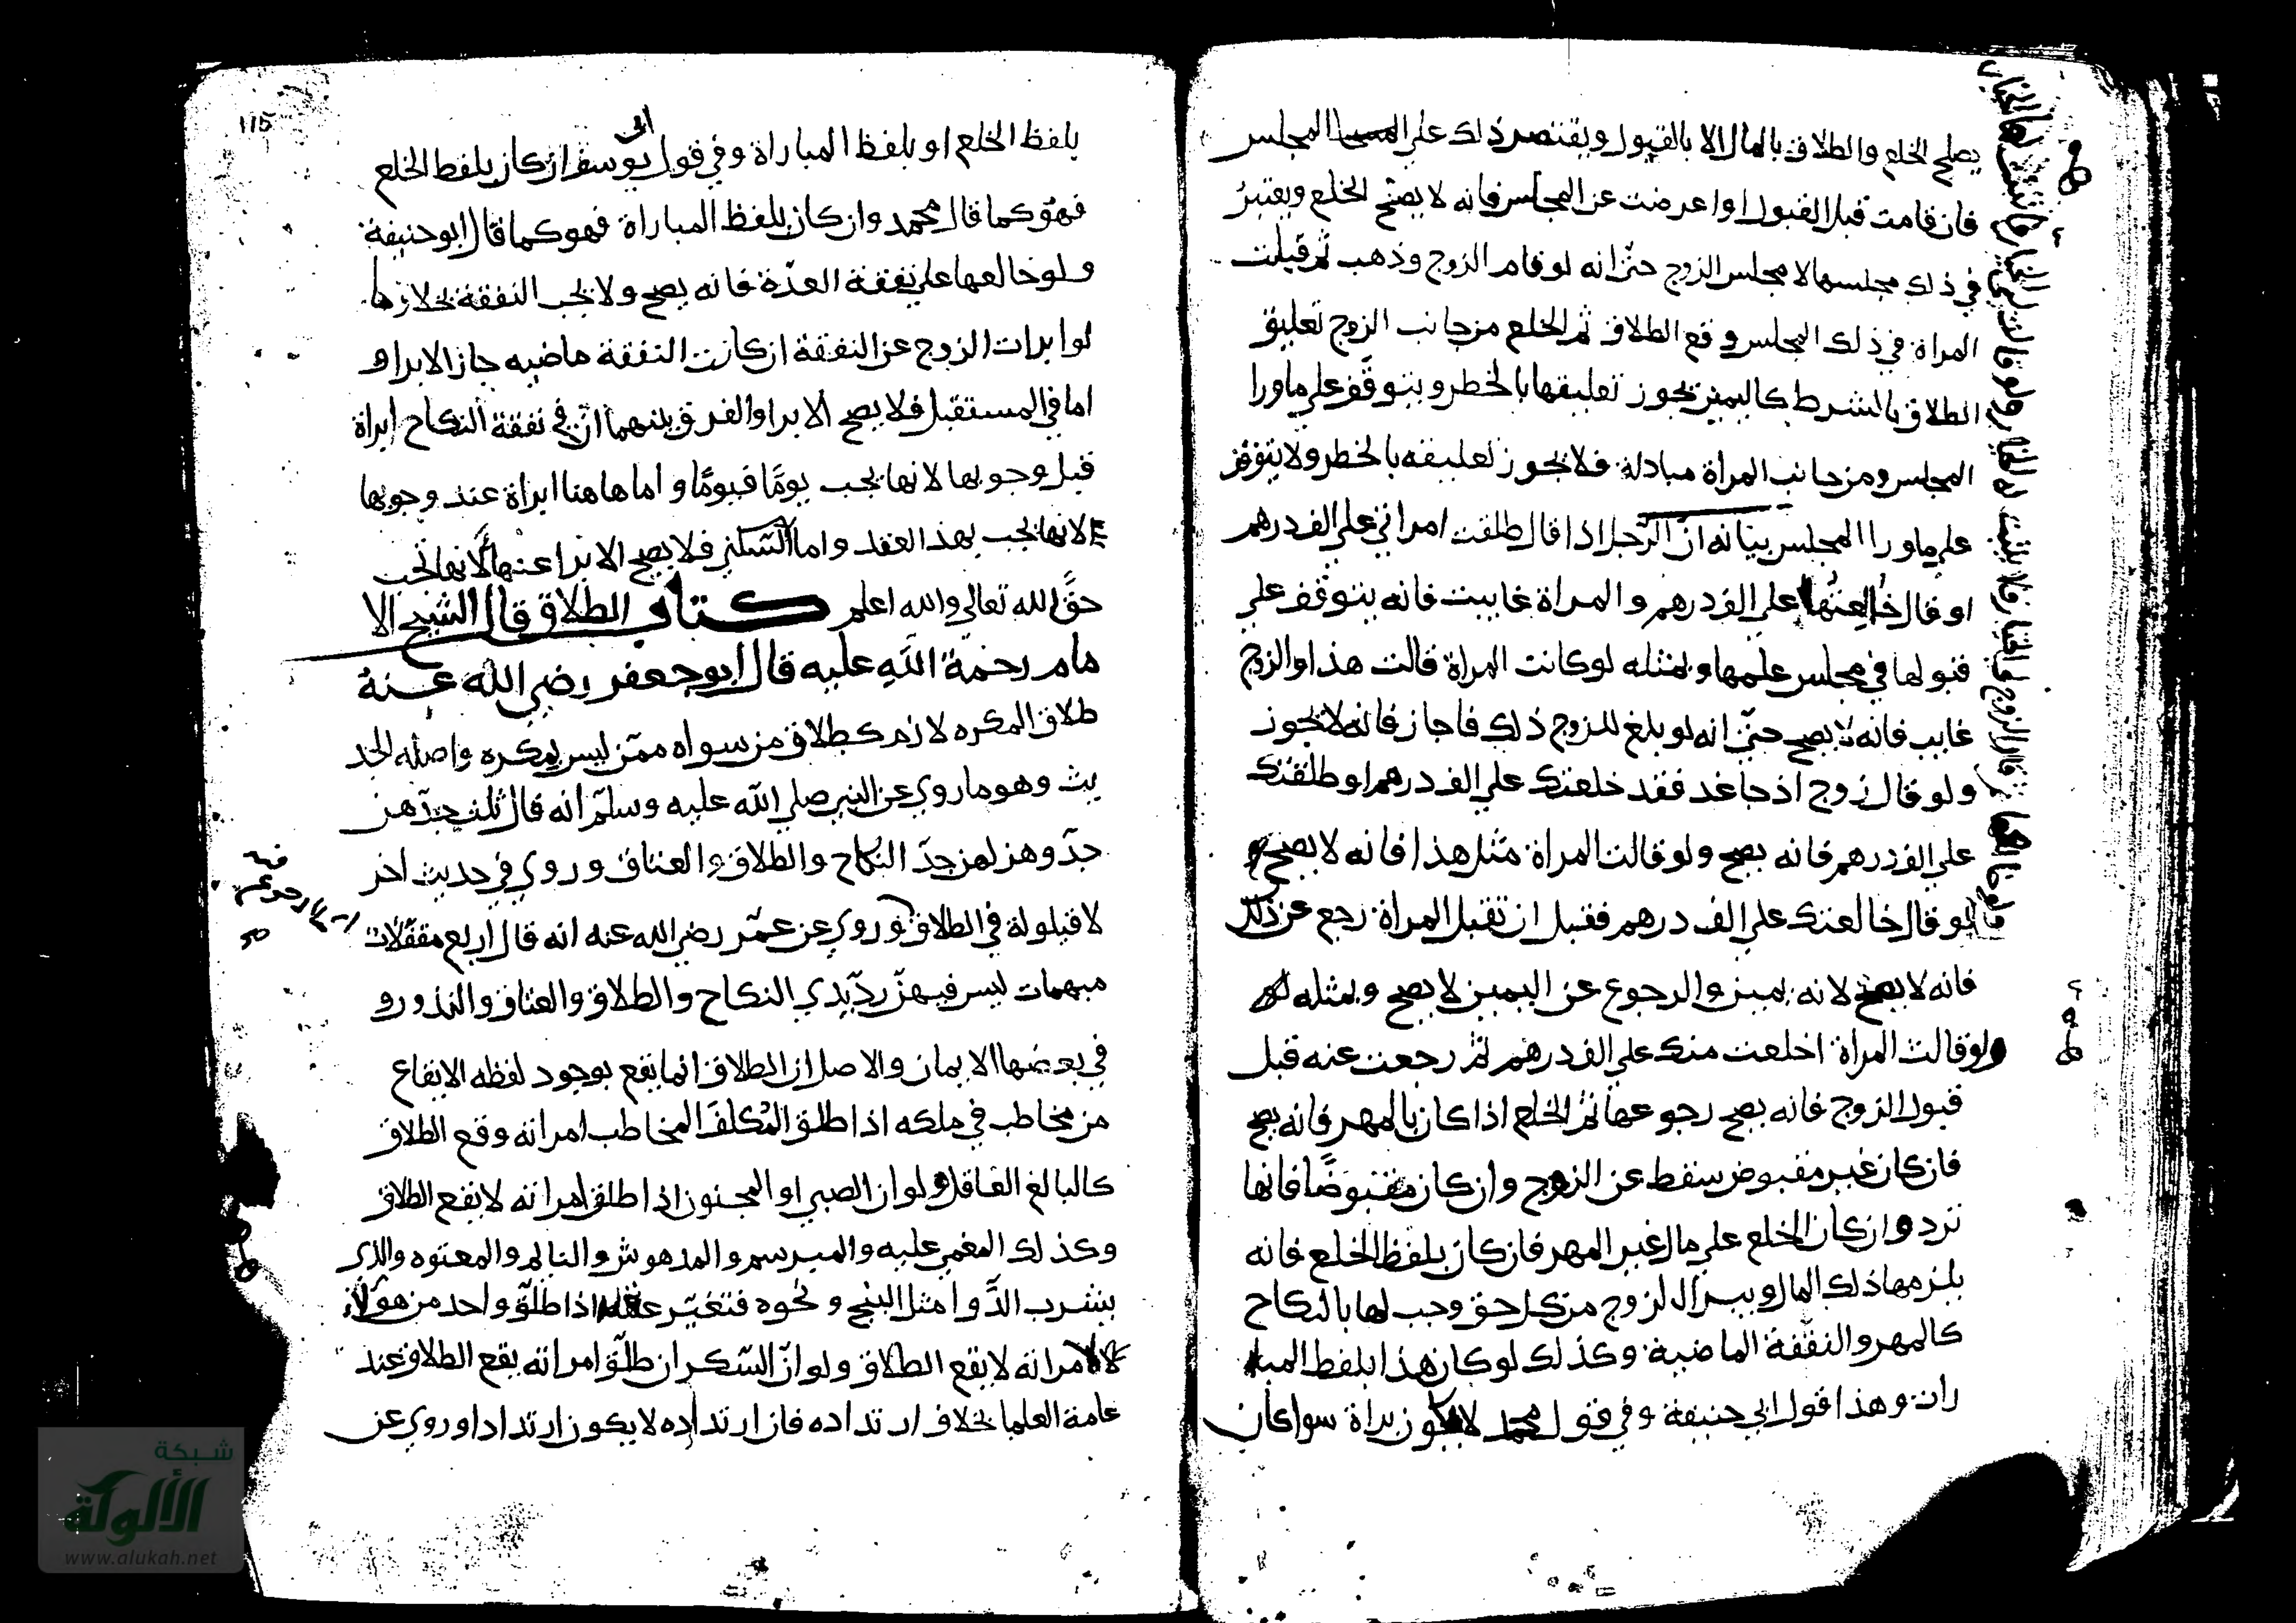 يصلح الخلع والطلاق بالمال الا بالقبول ويقتصر ذلك علي المجلس
فان قامت قبل القبول او اعرضت عن المجلس فانه لا يصح الخلع ويعتبر
في ذلك مجلسها لا مجلس الزوج حتّي انه لو قام الزوج وذهب ثم قبلت
المراة في ذلك المجلس وقع الطلاق ثم الخلع من جانب الزوج تعليق
الطلاق بالشرط كاليمين يجوز تعليقها بالخطر ويتوقف علي ماورا
المجلس ومن جانب المراة مبادلة فلا يجوز تعليقه بالخطر ولا يتوقف
علي ماورا المجلس بيانه ان الرّجل اذا قال طلقت امراتي علي الف درهم
او قال خالعتها علي الف درهم والمراة غايبت فانه يتوقف علي
قبولها في مجلس علمها وبمثله لو كانت المراة قالت هذا والزوج
غايب فانه لا يصح حتّي انه لو بلغ للزوج ذلك فاجاز فانه لا يجوز
ولو قال زوج اذ جا غد فقد خلعتك علي الف درهم او طلقتك
علي الف درهم فانه يصح ولو قالت المراة مثل هذا فانه لا يصح
لو قال خالعتك علي الف درهم فقبل ان تقبل المراة رجع عن ذلك
فانه لا يصح لانه يمين والرجوع عن اليمين لا يصح وبمثله لو
ولو قالت المراة اخلعت منك علي الف درهم ثم رجعت عنه قبل
قبول الزوج فانه يصح رجوعها ثم الخلع اذا كان بالمهر فانه يصح
فان كان غير مقبوض سقط عن الزوج وان كان مقبوضًا فانها
ترد وان كان الخلع علي مال غير المهر فان كان بلفظ الخلع فانه
يلزمها ذلك المال ويبرا الزوج من كل حق وجب لها بالنكاح
كالمهر والنفقة الماضية وكذلك لو كان هذا بلفظ المبا
رات وهذا قول ابي حنيفة وفي قول محمد لا يكون براة سوا كان
115
بلفظ الخلع او بلفظ المباراة وفي قول ابي يوسف ان كان بلفظ الخلع
فهو كما قال محمد وان كان بلفظ المباراة فهو كما قال ابو حنيفة
ولو خالعها علي نفقة العدّة فانه يصح ولا يجب النفقة بخلاف ما
لو ابرات الزوج عن النفقة ان كانت النفقة ماضيه جاز الابرا و
اما في المستقبل فلا يصح الابرا والفرق بينهما ان في نفقة النكاح ابراة
قبل وجوبها لانها يجب يومًا فيومًا واما هاهنا ابراة عند وجوبها
لانها يجب بهذ العقد واما السّكني فلا يصح الابرا عنها لانها تجب
حقّ الله تعالي والله اعلم كتاب الطلاق قال الشيخ الا
مام رحمة اللّه عليه قال ابو جعفر رضي الله عنهُ
طلاق المكره لازم كطلاق من سواه ممّن ليس بمكره واصله الحد
يث وهو ما روي عن النبي صلي الله عليه وسلّم انه قال ثلث جدّهن
جدّ وهزلهن جدّ النكاح والطلاق والعتاق وروي في حديث اخر
لا قيلولة في الطلاق وروي عن عمّر رضي الله عنه انه قال اربع مقفلات
مبهمات ليس فيهنّ ردّيدي النكاح والطلاق والعتاق والنذور و
في بعضها الايمان والاصل ان الطلاق انما يقع بوجود لفظه الايقاع
من مخاطب في ملكه اذا طلق المُكلف المخاطب امراته وقع الطلاق
كالبالغ العاقل ولو ان الصبي او المجنون اذا طلق امراته لا يقع الطلاق
وكذلك المغمي عليه والمبرسم والمدهوش والنايم والمعتوه والذي
يشرب الدّوا مثل البنج ونحوه فتغيّر عقله اذا طلّق واحد من هولآء
امراته لا يقع الطلاق ولو انّ السّكران طلّق امراته يقع الطلاق عند
عامة العلما بخلاف ارتداده فان ارتداده لا يكون ارتدادا وروي عن
شبكة
الألوكة
www.alukah.net